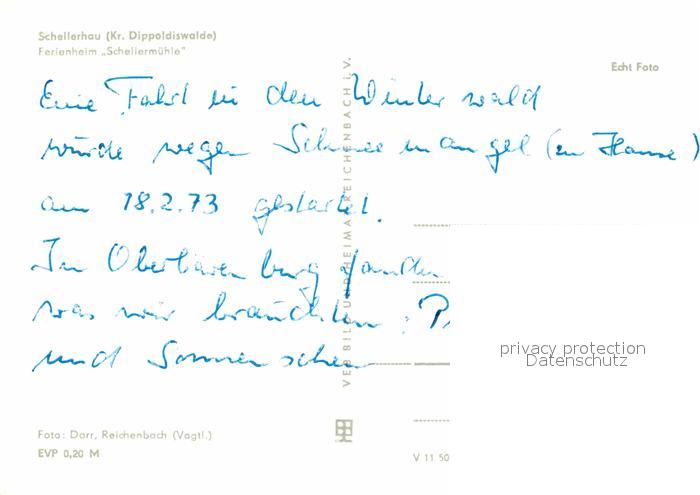 Schellerhau (Kr. Dippoldiswalde)
Ferienheim „Schellermühle"
Echt Foto
Eine Fahrt in den Winterwald
wurde wegen Schneemangel (zu Hause)
am 18.2.73 gestartet.
In Oberbärenburg fanden
was wir brauchten: P
und Sonnenschein
VEB BILD UND HEIMAT REICHENBACH i. V.
privacy protection
Datenschutz
Foto: Darr, Reichenbach (Vogtl.)
EVP 0,20 M
V 11 50